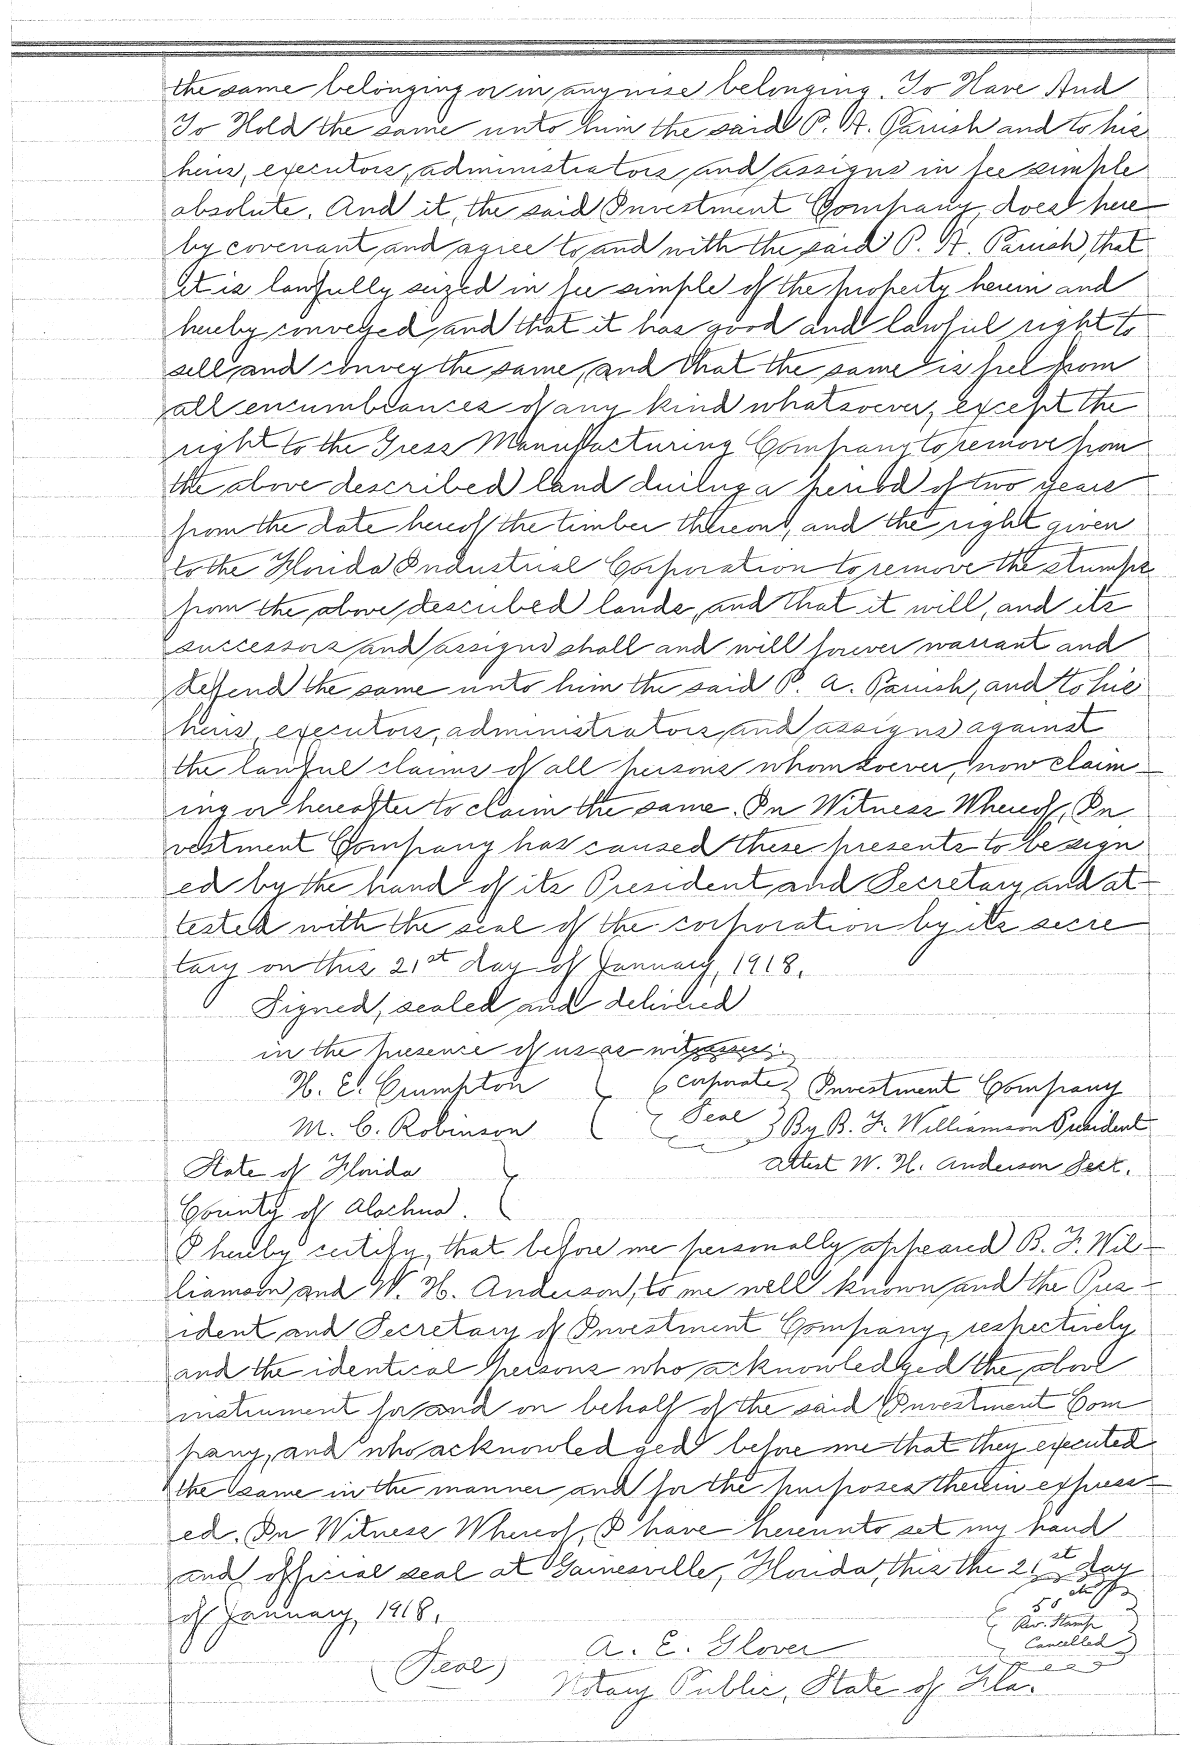 the same belonging or in anywise belonging. To Have And
To Hold the same unto him the said P. A. Parrish and to his
heirs, executors, administrators, and assigns in fee simple
absolute. And it, the said Investment Company, does here
by covenant and agree to and with the said P. A. Parrish, that
it is lawfully seized in fee simple of the property herein and
hereby conveyed, and that it has good and lawful right to
sell and convey the same, and that the same is free from
all encumbrances of any kind whatsoever, except the
right to the Gress Manufacturing Company to remove from
the above described land during a period of two years
from the date hereof the timber thereon, and the right given
to the Florida Industrial Corporation to remove the stumps
from the above described lands, and that it will, and its
successors and assigns shall and will forever warrant and
defend the same unto him the said P. A. Parrish, and to his
heirs, executors, administrators, and assigns against
the lawful claims of all persons whomsoever, now claim
ing or hereafter to claim the same. In Witness Whereof, In
vestment Company has caused these presents to be sign
ed by the hand of its President and Secretary, and at-
tested with the seal of the corporation by its secre
tary on this 21st day of January, 1918.
Signed, sealed and delivered
in the presence of us as witnesses:
H. E. Crumpton (Corporate) Investment Company
M. C. Robinson ( Seal ) By B. F. Williamson President
State of Florida Attest W. H. Anderson Sect.
County of Alachua.
I hereby certify, that before me personally appeared B. F. Wil-
liamson and W. H. Anderson, to me well known and the Pres-
ident and Secretary of Investment Company, respectively
and the identical persons who acknowledged the above
instrument for and on behalf of the said Investment Com
pany, and who acknowledged before me that they executed
the same in the manner and for the purposes therein express-
ed. In Witness Whereof, I have hereunto set my hand
and official seal at Gainesville, Florida, this the 21st day
of January, 1918.
50
Rev. Stamp
Cancelled
A. E. Glover
(Seal)
Notary Public, State of Fla.